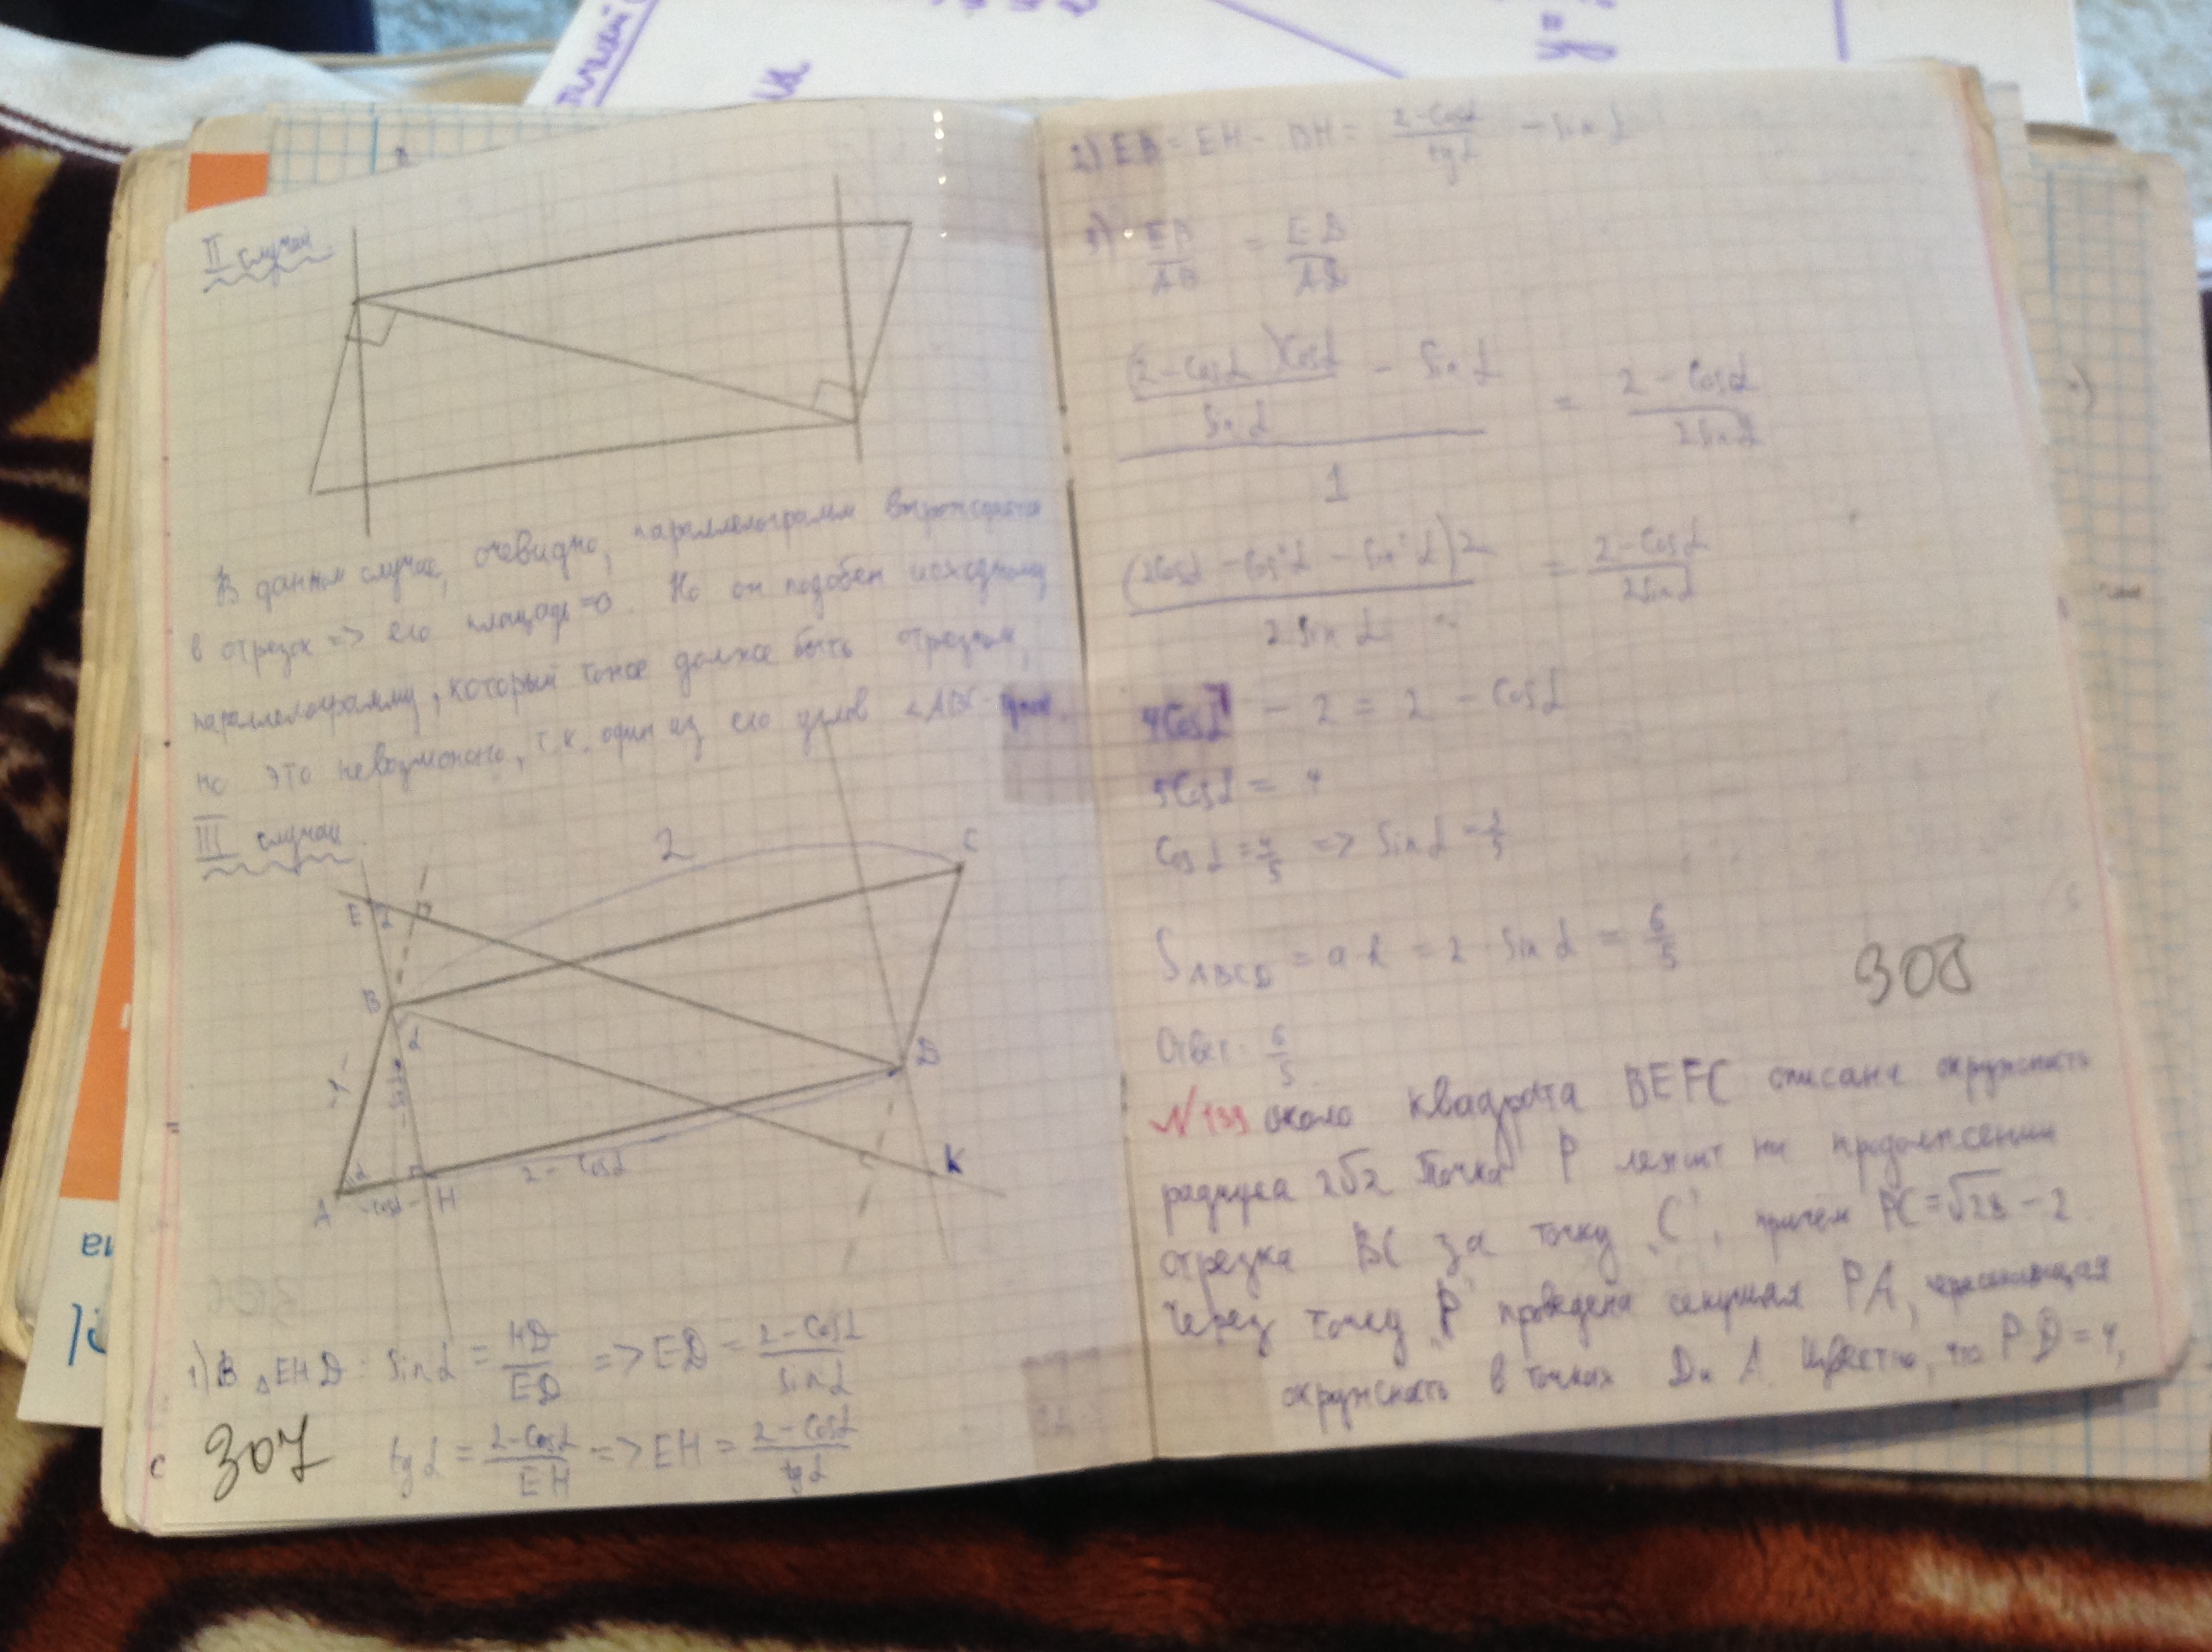 II случай
В данном случае, очевидно, параллелограмм вырождается
в отрезок => его площадь =0. Но он подобен исходному
параллелограмму, который тоже должен быть отрезком,
но это невозможно, т.к. один из его углов ∠ABC
III случай
2
C
E
2
B
α
D
1
sin α
α
A
cos α
H
2 - cos α
K
1) В △EHD: sin α = HD/ED => ED = (2 - cos α)/sin α
tg α = (2 - cos α)/EH => EH = (2 - cos α)/tg α
307
2) EB = EH - BH = (2 - cos α)/tg α - sin α
3) EB/AB = ED/AD
((2 - cos α) cos α/sin α - sin α)/1 = (2 - cos α)/(2 sin α)
(2cos α - cos² α - sin² α)2/(2 sin α) = (2 - cos α)/(2 sin α)
4cos α - 2 = 2 - cos α
5cos α = 4
cos α = 4/5 => sin α = 3/5
S ABCD = a h = 2 · sin α = 6/5
308
Ответ: 6/5
№139 около квадрата BEFC описана окружность
радиуса 2√2 Точка P лежит на продолжении
отрезка BC за точку "C", причём PC = √28 - 2.
Через точку "P" проведена секущая PA, пересекающая
окружность в точках D и A. Известно, что PD = 4,